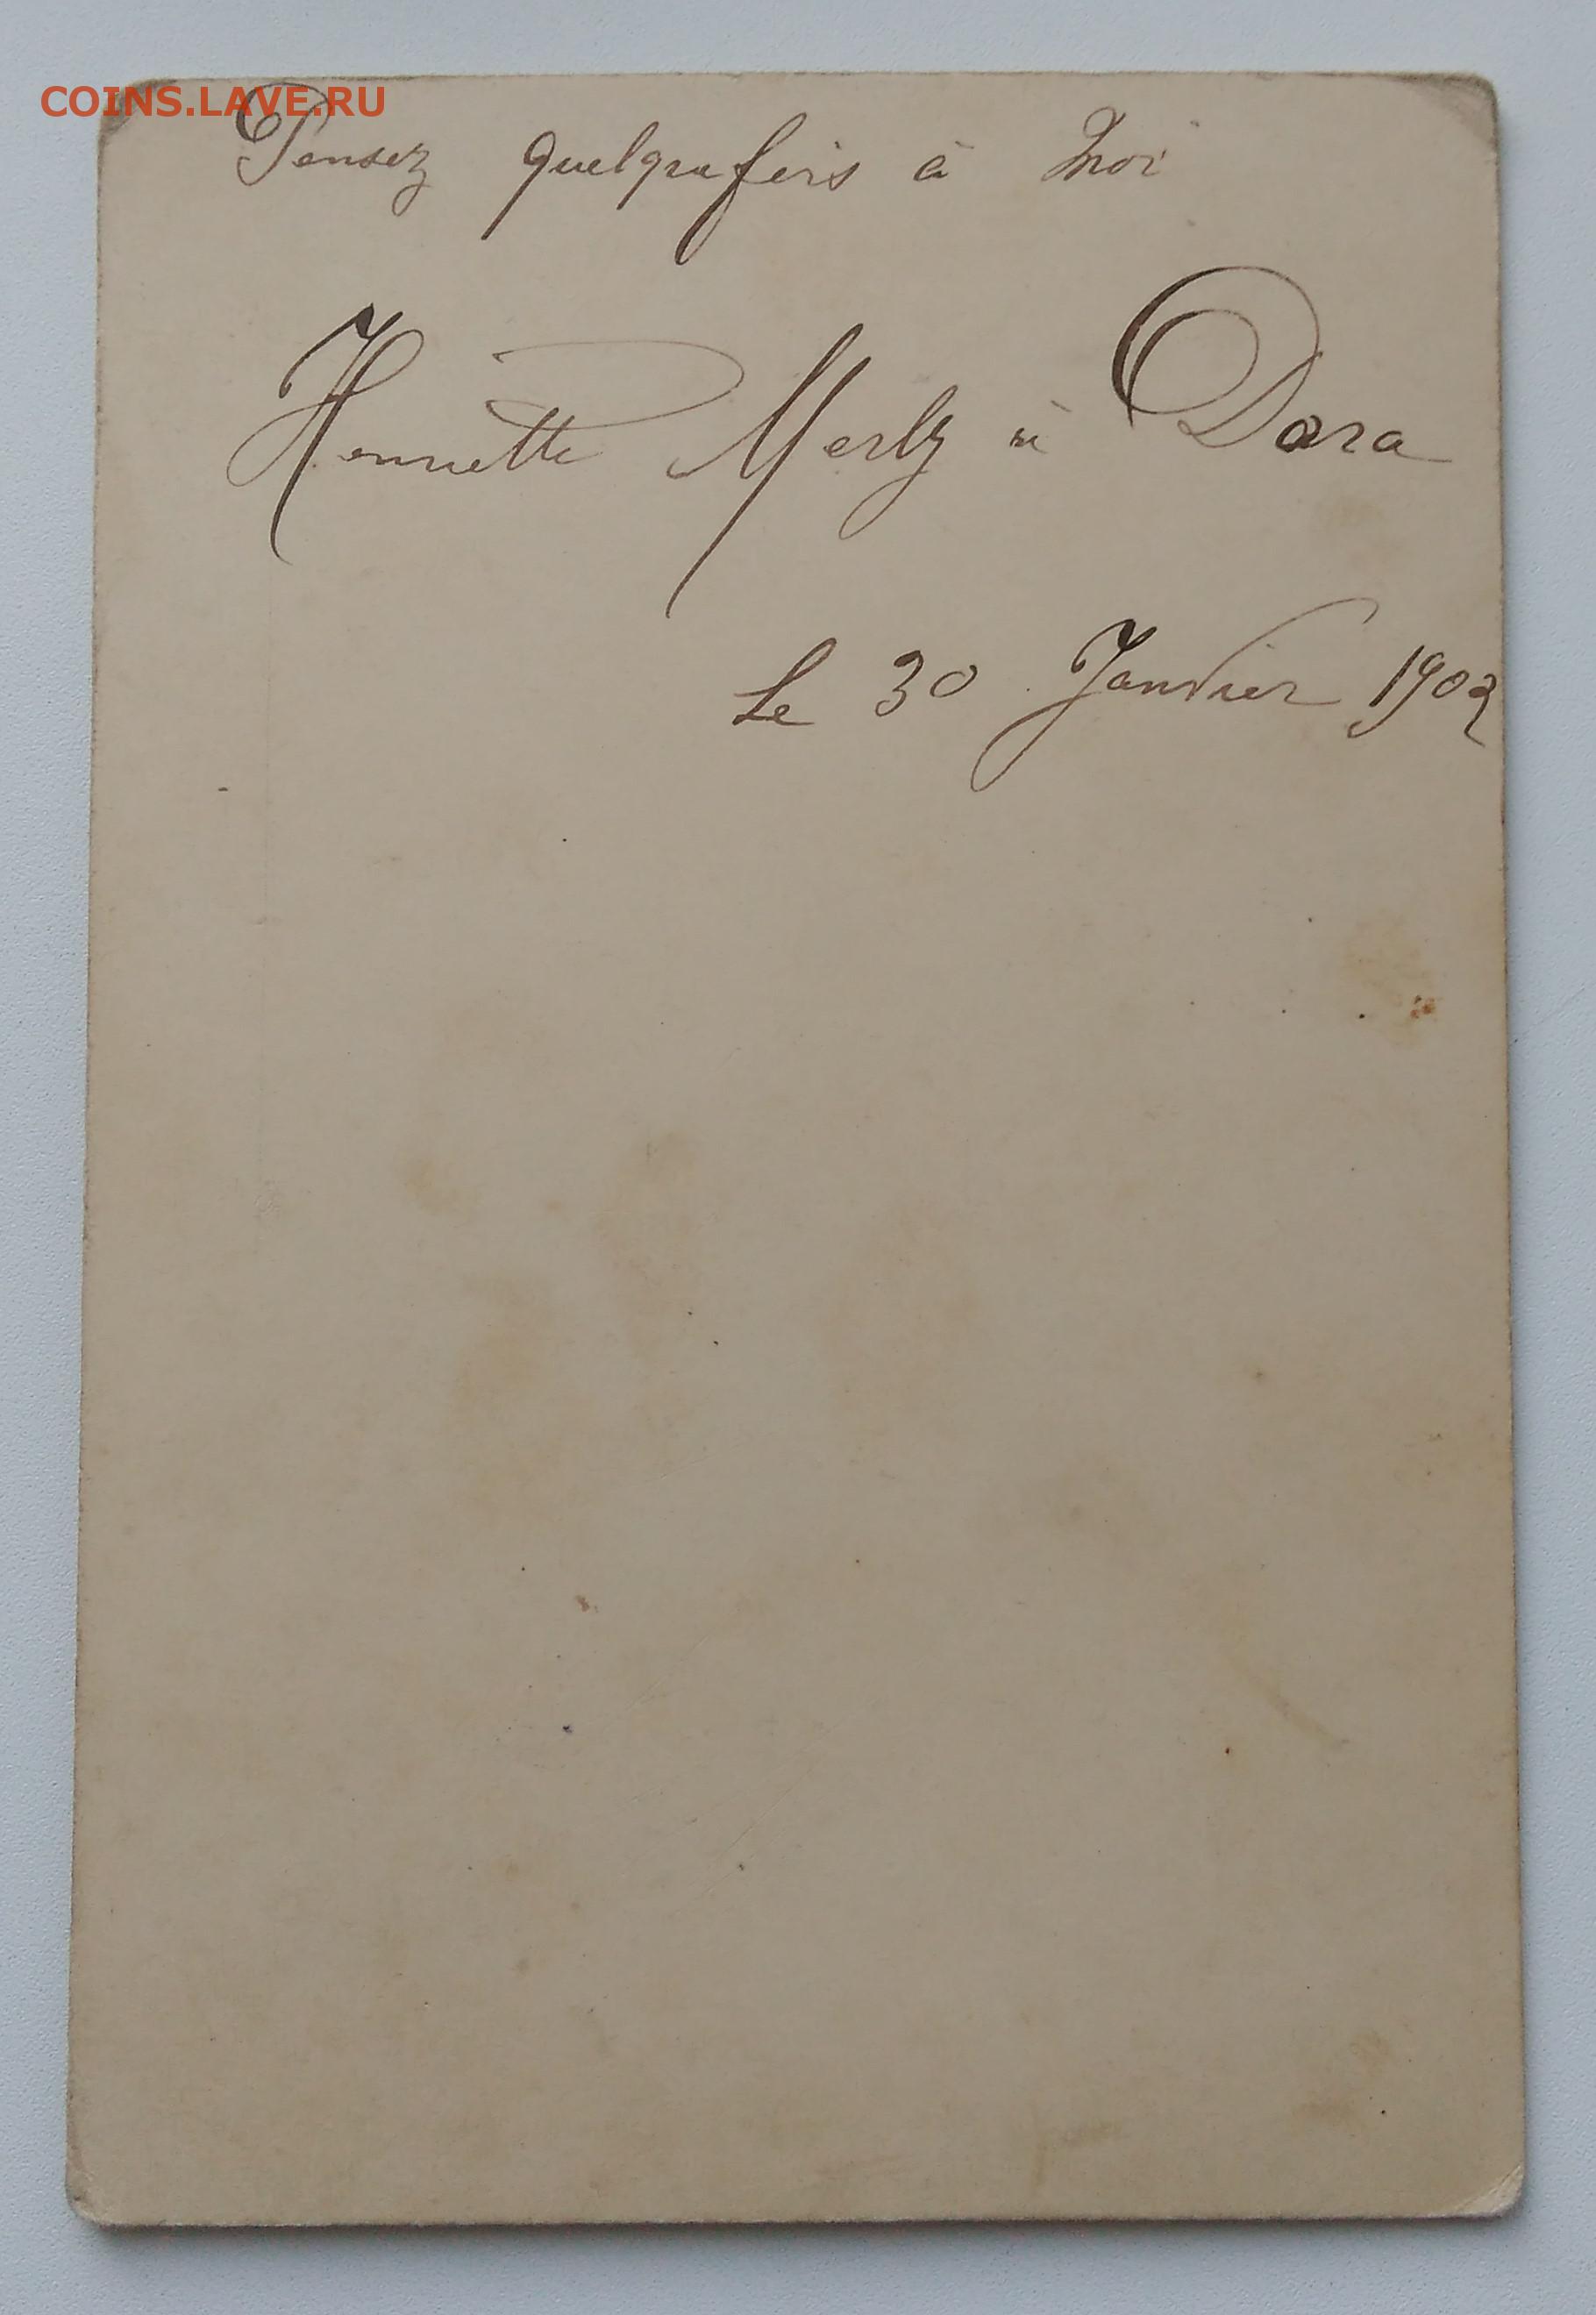 COINS.LAVE.RU
Pensez quelquefois à moi
Henriette Mertz à Dora
Le 30 Janvier 1902